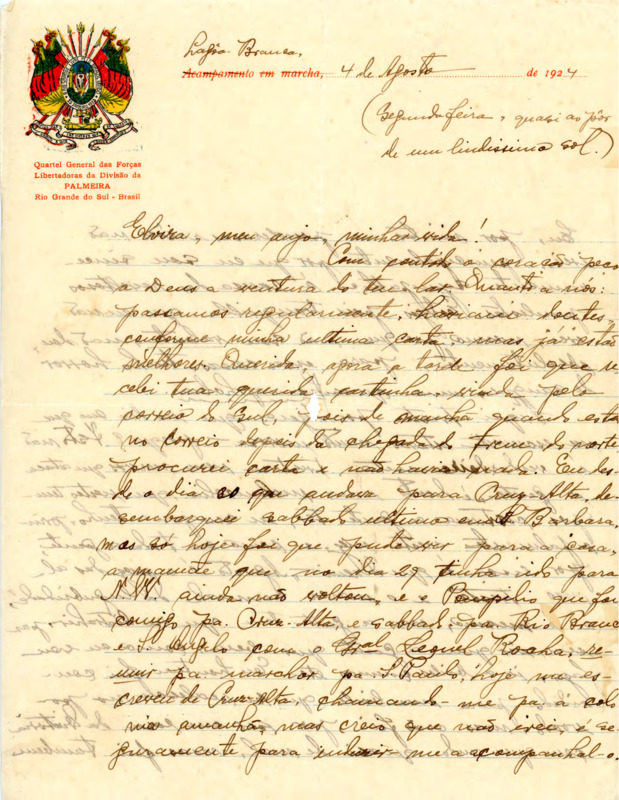 Lagôa Branca,
Acampamento em marcha, 4 de Agosto de 1924
(Segunda feira, quasi ao pôr
de um lindissimo sol.)
Quartel General das Forças
Libertadoras da Divisão da
PALMEIRA
Rio Grande do Sul - Brasil
Elvira, meu anjo, minha vida!
Com o coração peço
a Deus a ventura do teu lar. Quanto a nós:
passamos regularmente, haviam doentes,
conforme minha ultima carta, mas já estão
melhores. Querida, agora a tarde foi que re-
cebi tua querida cartinha vinda pelo
correio do Sul, pois de manhã quando esta
no correio depois da chegada do trem do norte
procurei carta e não havia nada. Eu des-
de o dia que andava para Cruz-Alta, de-
sembarquei sabbado ultimo em Sta Barbara,
mas só hoje foi que pude vir para a casa,
a que no dia 29 tinha ido para
N.W. ainda não voltou, e o Pompilio que foi
comigo pa. Cruz-Alta, e sabbado pa. Rio Branco
e S. Angelo com o Gral Leonel Rocha, re-
unir pa marchar pa S. Paulo, hoje me es-
creveu de Cruz-Alta, chamando-me pa. á colo
nia amanhã, mas creio que não irei, é se-
guramente, para me a acompanhal-o.